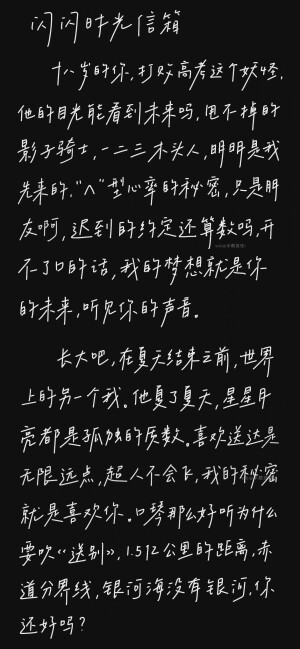 闪闪时光信箱
十八岁的你,打败高考这个妖怪,
他的目光能看到未来吗,甩不掉的
影子骑士,一二三木头人,明明是我
先来的,“八”型心率的秘密,只是朋
友啊,迟到的约定还算数吗,开
不了口的话,我的梦想就是你
的未来,听见你的声音。
长大吧,在夏天结束之前,世界
上的另一个我。他夏了夏天,星星月
亮都是孤独的质数。喜欢送达是
无限远点,超人不会飞,我的秘密
就是喜欢你。口琴那么好听为什么
要吹《送别》,1.512公里的距离,赤
道分界线,银河海没有银河,你
还好吗?